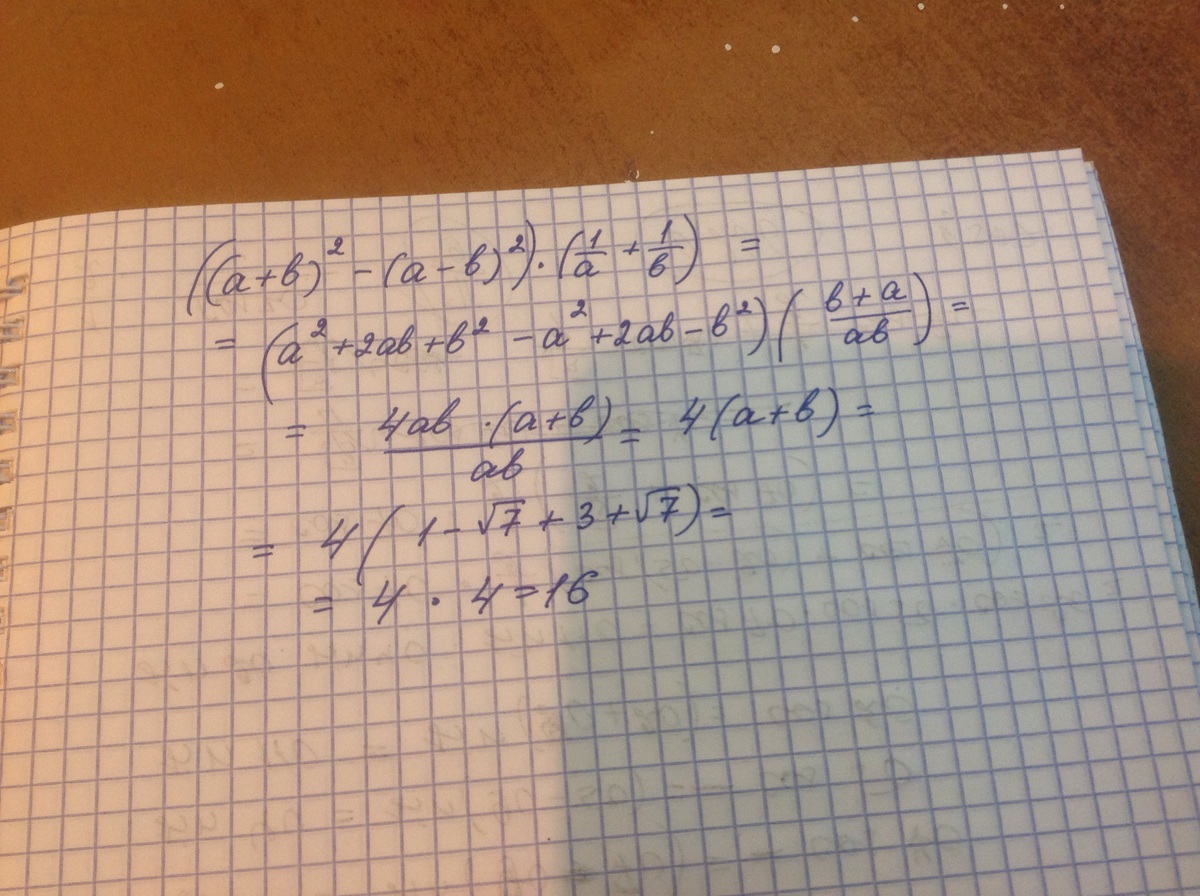 ((a+b)² - (a-b)²) · (1/a + 1/b) =
= (a² + 2ab + b² - a² + 2ab - b²) ((b+a)/ab) =
= (4ab · (a+b))/ab = 4(a+b) =
= 4(1 - √7 + 3 + √7) =
= 4 · 4 = 16